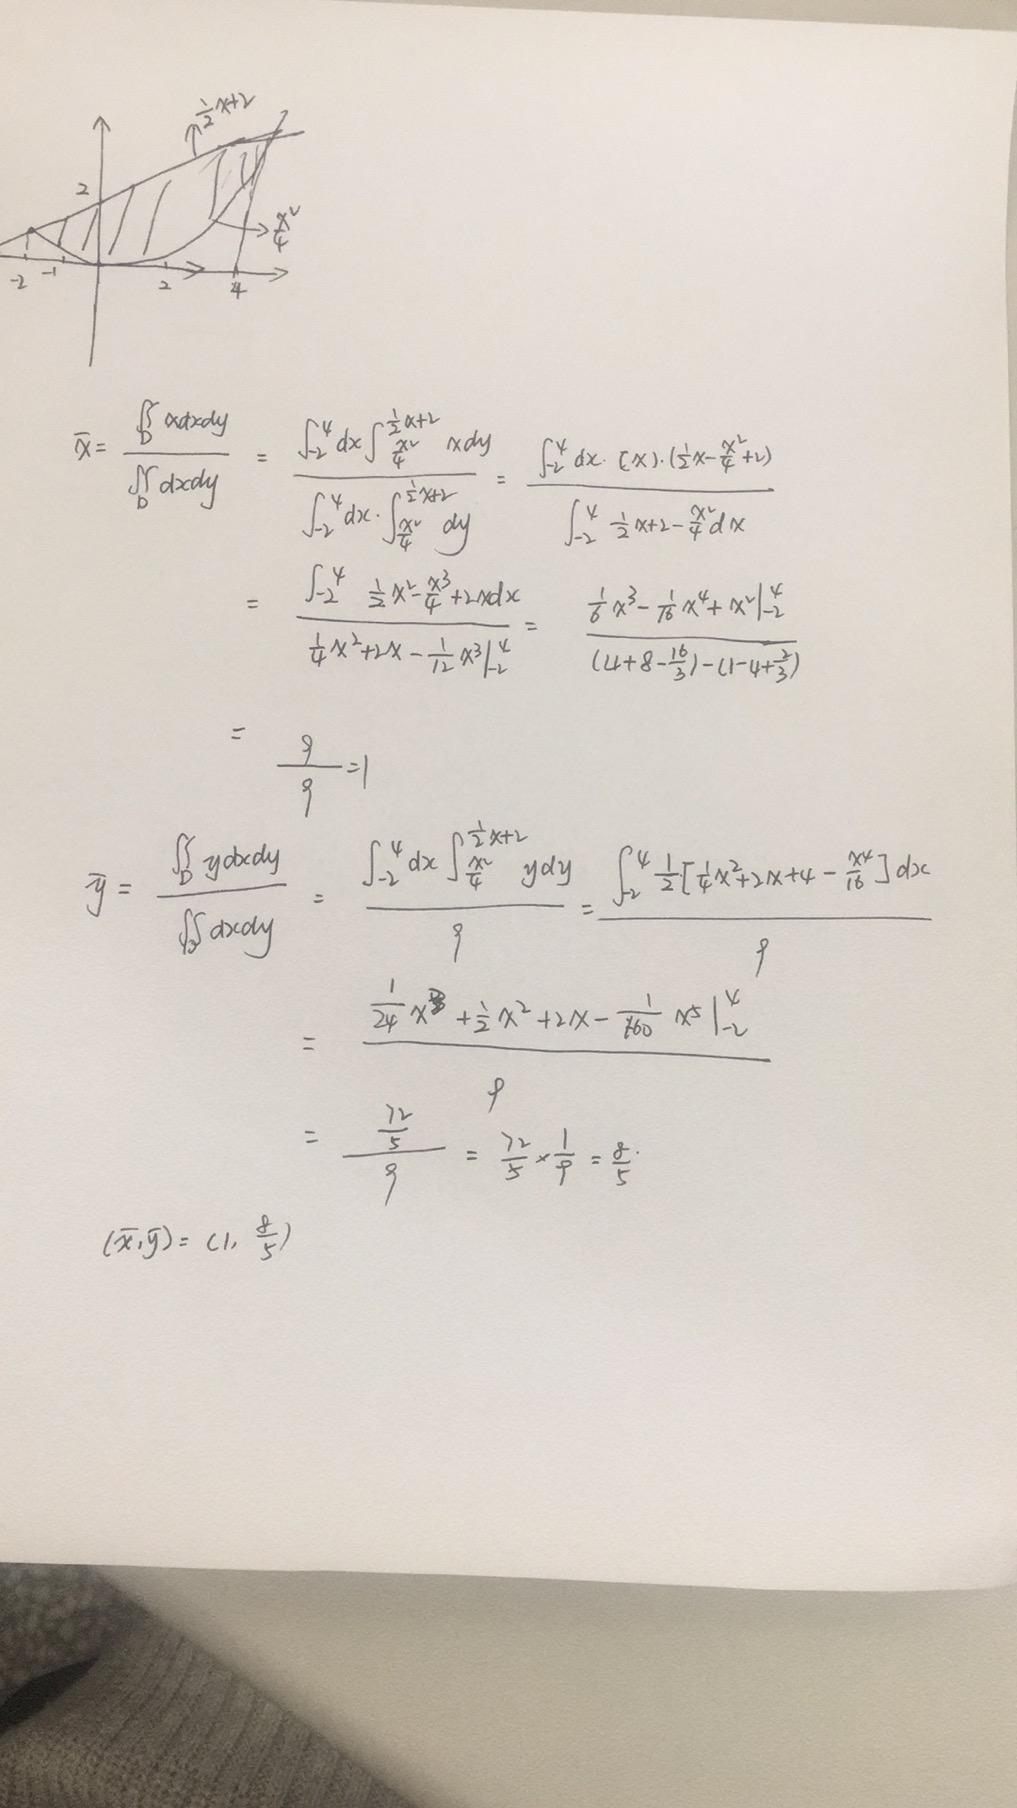 1/2x+2
2
x²/4
-2 -1 2 4
x̄ = ∬_D xdxdy / ∬_D dxdy = ∫_{-2}^{4} dx ∫_{x²/4}^{1/2x+2} xdy / ∫_{-2}^{4} dx · ∫_{x²/4}^{1/2x+2} dy = ∫_{-2}^{4} dx · (x) · (1/2x - x²/4 + 2) / ∫_{-2}^{4} 1/2x + 2 - x²/4 dx
= ∫_{-2}^{4} 1/2x² - x³/4 + 2xdx / 1/4x² + 2x - 1/12x³ |_{-2}^{4} = 1/6x³ - 1/16x⁴ + x² |_{-2}^{4} / (4+8-16/3) - (1-4+2/3)
= 9/9 = 1
ȳ = ∬_D ydxdy / ∬_D dxdy = ∫_{-2}^{4} dx ∫_{x²/4}^{1/2x+2} ydy / 9 = ∫_{-2}^{4} 1/2 [1/4x² + 2x + 4 - x⁴/16] dx / 9
= 1/24x³ + 1/2x² + 2x - 1/160 x⁵ |_{-2}^{4} / 9
= 72/5 / 9 = 72/5 × 1/9 = 8/5.
(x̄,ȳ) = (1, 8/5)